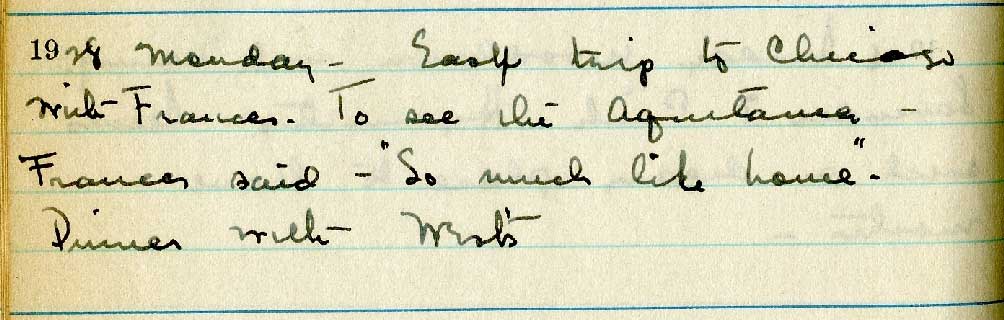 1928 Monday - Easy trip to Chicago
with Frances. To see the Aquitania -
Frances said - "So much like home".
Dinner with West's